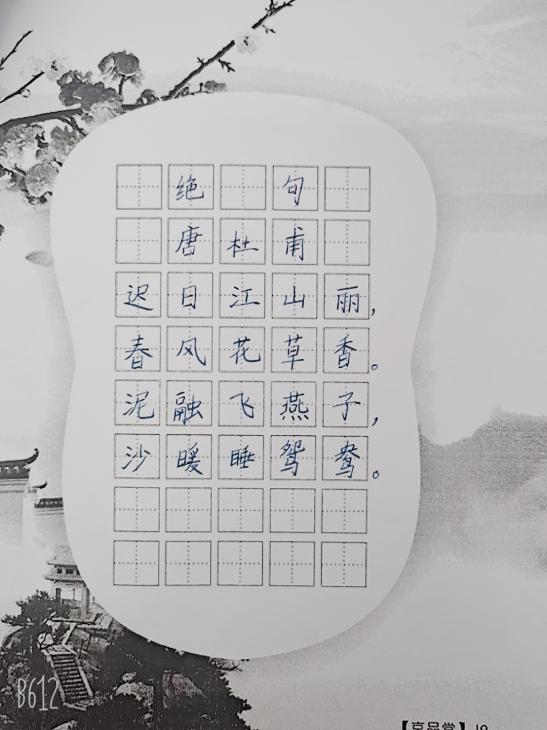 绝句
唐 杜甫
迟日江山丽，
春风花草香。
泥融飞燕子，
沙暖睡鸳鸯。
B612
【京品堂】19